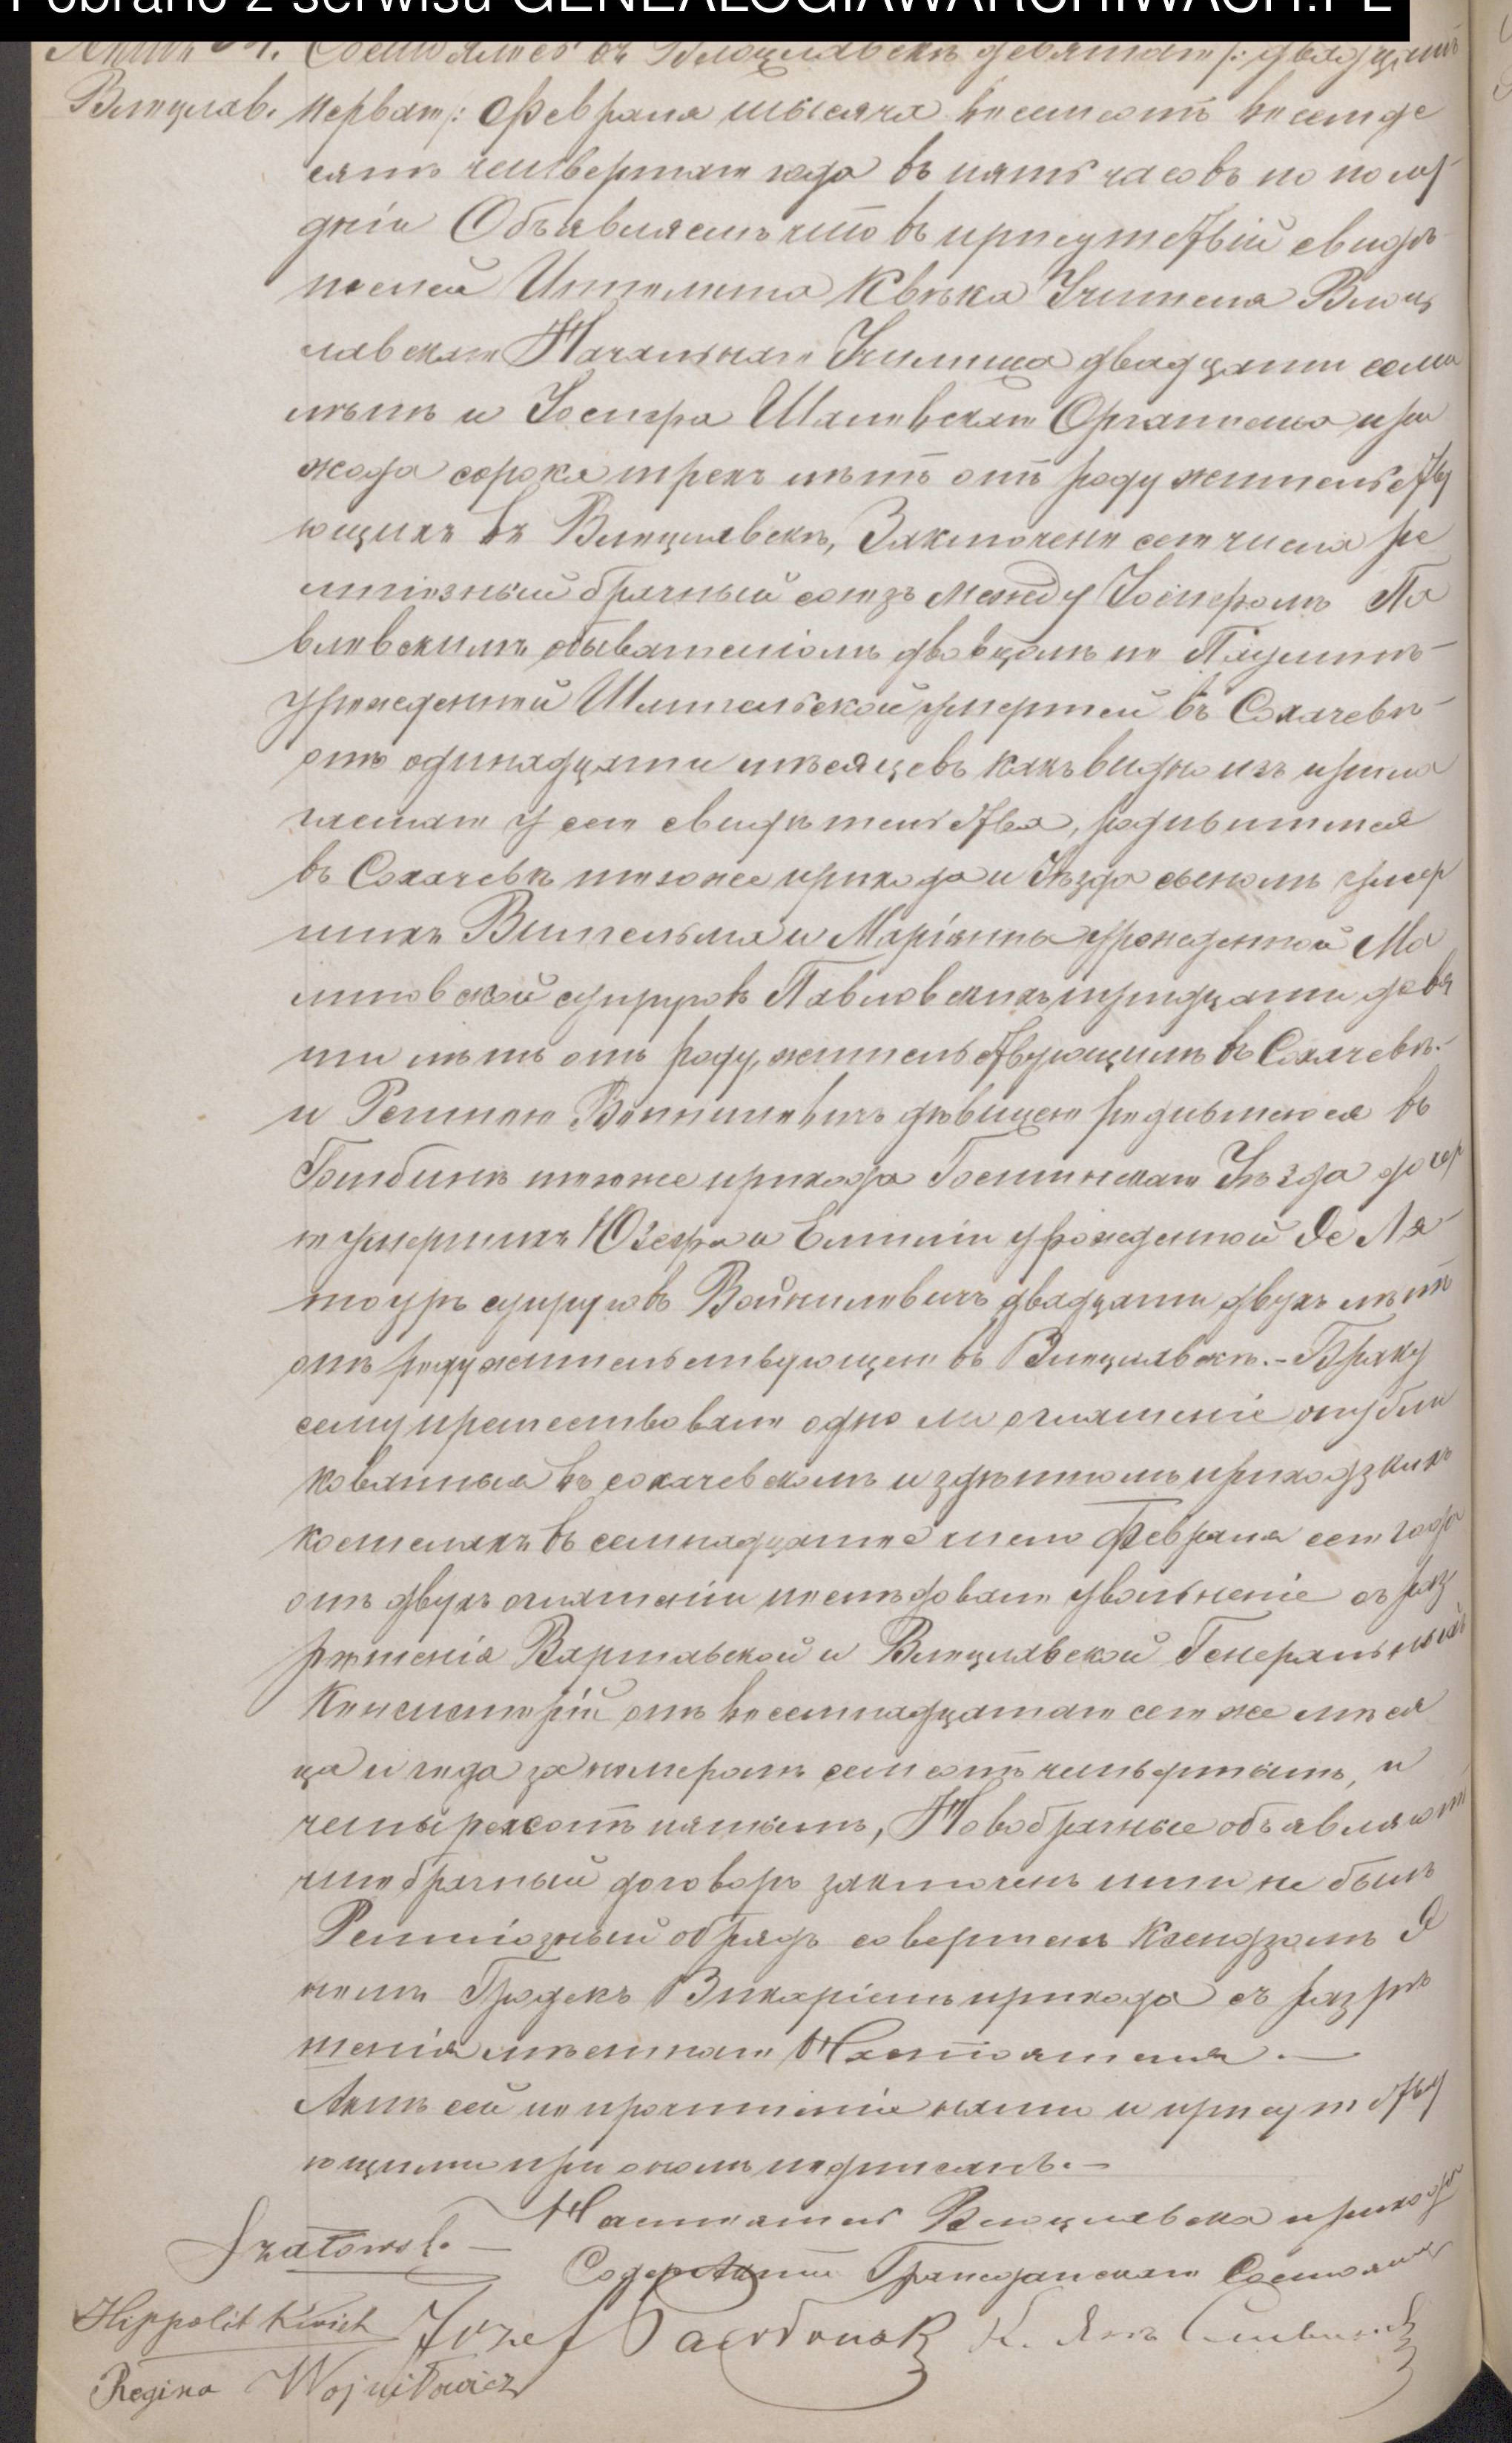 Pobrano z serwisu GENEALOGIAWARCHIWACH.PL
Состоялось въ Влоцлавскѣ девятаго /: двадцать
Влоцлав. перваго /: Февраля тысяча восемсотъ восемде
сятъ четвертаго года въ пять часовъ по полу
дніи Объявляемъ что въ присутствіи свидѣ
телей Ипполита Квѣка Учителя Влоц
лавскаго Начальнаго Училища двадцати семи
лѣтъ и Іосифа Шатовскаго Органиста при
хода сорока трехъ лѣтъ отъ роду жительству
ющихъ въ Влоцлавскѣ, Заключенъ сего числа ре
лигіозный брачный союзъ между Іосифомъ Па
вловскимъ обывателіомъ вдовцомъ по Паулинѣ
урожденной смертей въ Сохачевѣ
отъ одинадцати мѣсяцевъ какъ видно изъ прила
гаемаго у сего свидѣтельства, родившимся
въ Сохачевѣ того же прихода и Уѣзда сыномъ умер
шихъ Вильгельма и Маріанны урожденной Ма
линовской супруговъ Павловскихъ тридцати девя
ти лѣтъ отъ роду, жительствующимъ въ Сохачевѣ.
и Региною Войниловичъ дѣвицею родившеюся въ
Гомбинѣ того же прихода Гостынскаго Уѣзда дочер
ю умершихъ Юзефа и Емиліи урожденной Де Ля
тоуръ супруговъ Войниловичъ двадцати двухъ лѣтъ
отъ роду жительствующею въ Влоцлавскѣ. - Браку
сему предшествовало одно оглашеніе опубли
кованныя въ сохачевскомъ и здѣшномъ приходзкихъ
костелахъ въ семнадцатое число Февраля сего года
отъ двухъ оглашеніи послѣдовало увольненіе съ раз
рѣшенія Варшавской и Влоцлавской Генеральныхъ
Консисторій отъ восемнадцатаго сего же мѣся
ца и года за номеромъ семсотъ четвертымъ, и
четырехсотъ пятымъ, Новобрачные объявляютъ
что брачный договоръ заключенъ ими не былъ
Религіозный обрядъ совершенъ Ксендзомъ Я
номъ Градекъ Викаріемъ прихода съ разрѣ
шенія мѣстнаго Настоятеля. —
Актъ сей по прочтеніи нами и присутству
ющими при ономъ подписанъ. —
Настоятель Влоцлавска прихода
Содержащій Гражданскаго Состоянія
Szatowsk. —
Hippolit Kwiek Józef К. Янъ
Regina Wojniłowicz